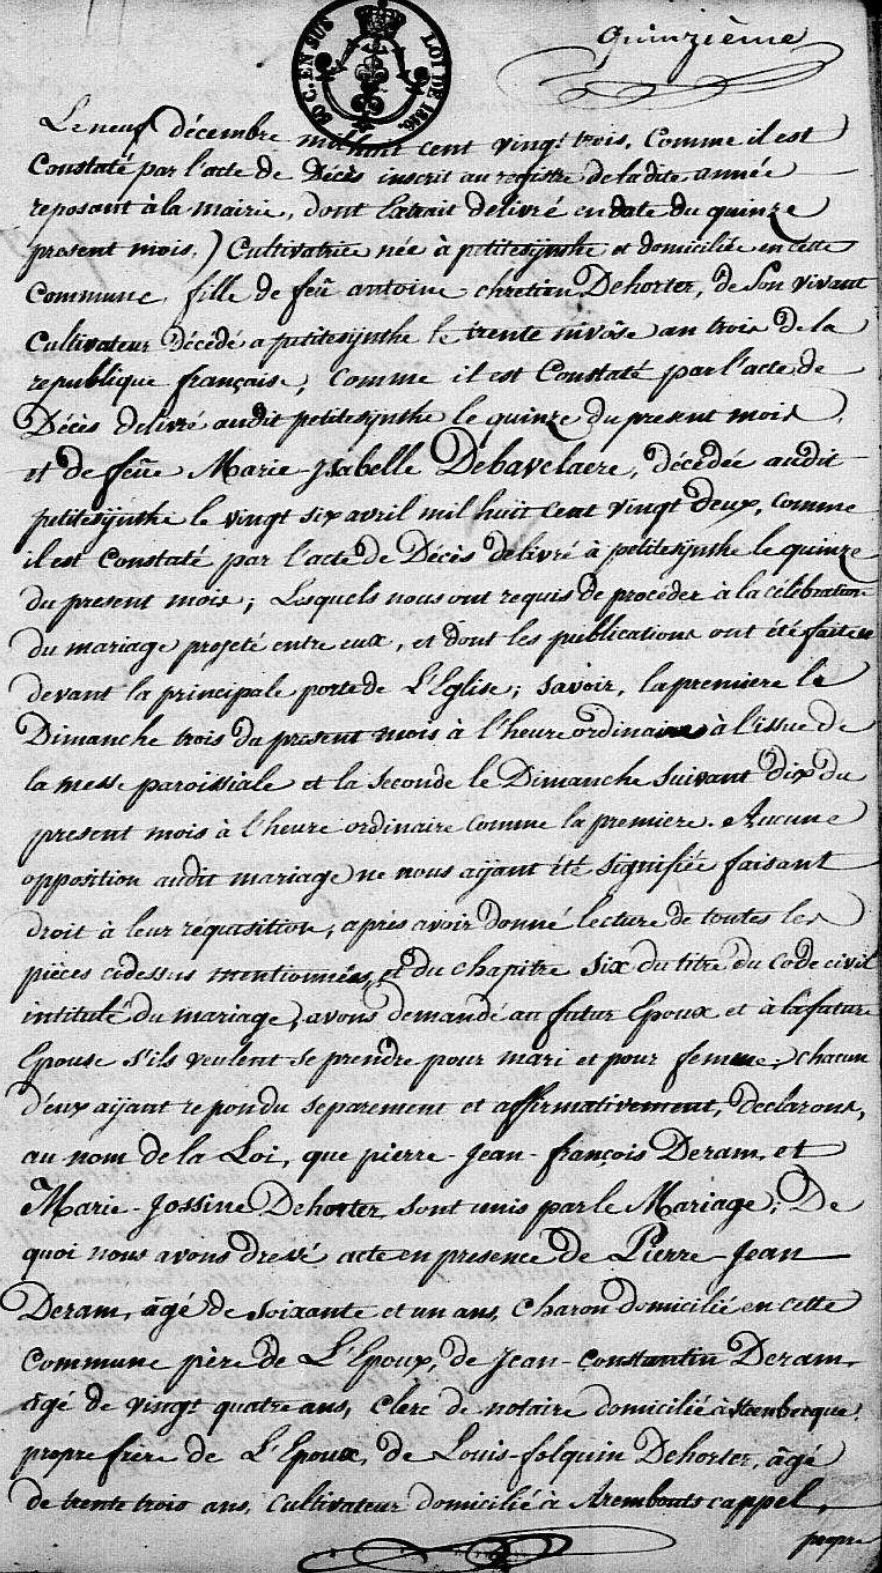 quinzième
50 C. EN SUS LOI DE 1816.
Le neuf décembre mil huit cent vingt trois, Comme il est
Constaté par l'acte de Décès inscrit au registre de la dite année
reposant à la mairie, dont Extrait delivré en date du quinze
present mois,) Cultivatrice née à petitesynthe et domiciliée en cette
Commune, fille de feû antoine chretien Dehorter, de Son vivant
Cultivateur Décédé a petitesynthe le trente nivôse an trois de la
republique française, Comme il est Constaté par l'acte de
Décès delivré audit petitesynthe le quinze du present mois,
et de feûe Marie-Jsabelle Debavelaere, décédée audit
petitesynthe le vingt six avril mil huit cent vingt deux, comme
il est Constaté par l'acte de Décès delivré à petitesynthe le quinze
du present mois; Lesquels nous ont requis de procéder à la célébration
du mariage projeté entre eux, et dont les publications ont été faites
devant la principale porte de L'Eglise; savoir, la premiere le
Dimanche trois du present mois à l'heure ordinaire à l'issue de
la messe paroissiale et la seconde le Dimanche suivant dix du
present mois à l'heure ordinaire comme la premiere. Aucune
opposition audit mariage ne nous aÿant été signifiée faisant
droit à leur réquisition, après avoir donné lecture de toutes les
pièces cidessus mentionnées, et du chapitre six du titre du code civil
intitulé du mariage, avons demandé au futur Epoux et à la future
Epouse s'ils veulent se prendre pour mari et pour femme; chacun
d'eux aÿant repondu separement et affirmativement, Declarons,
au nom de la Loi, que pierre-Jean-françois Deram, et
Marie-Jossine Dehorter sont unis par le Mariage; De
quoi nous avons dressé acte en presence de Pierre-Jean
Deram, âgé de soixante et un ans, Charon domicilié en cette
Commune père de L'Epoux, de Jean-Constantin Deram,
âgé de vingt quatre ans, Clerc de notaire domicilié à Steenbecque,
propre frère de L'Epoux, de Louis-folquin Dehorter, âgé
de trente trois ans, Cultivateur domicilié à Arembouts cappel,
propre